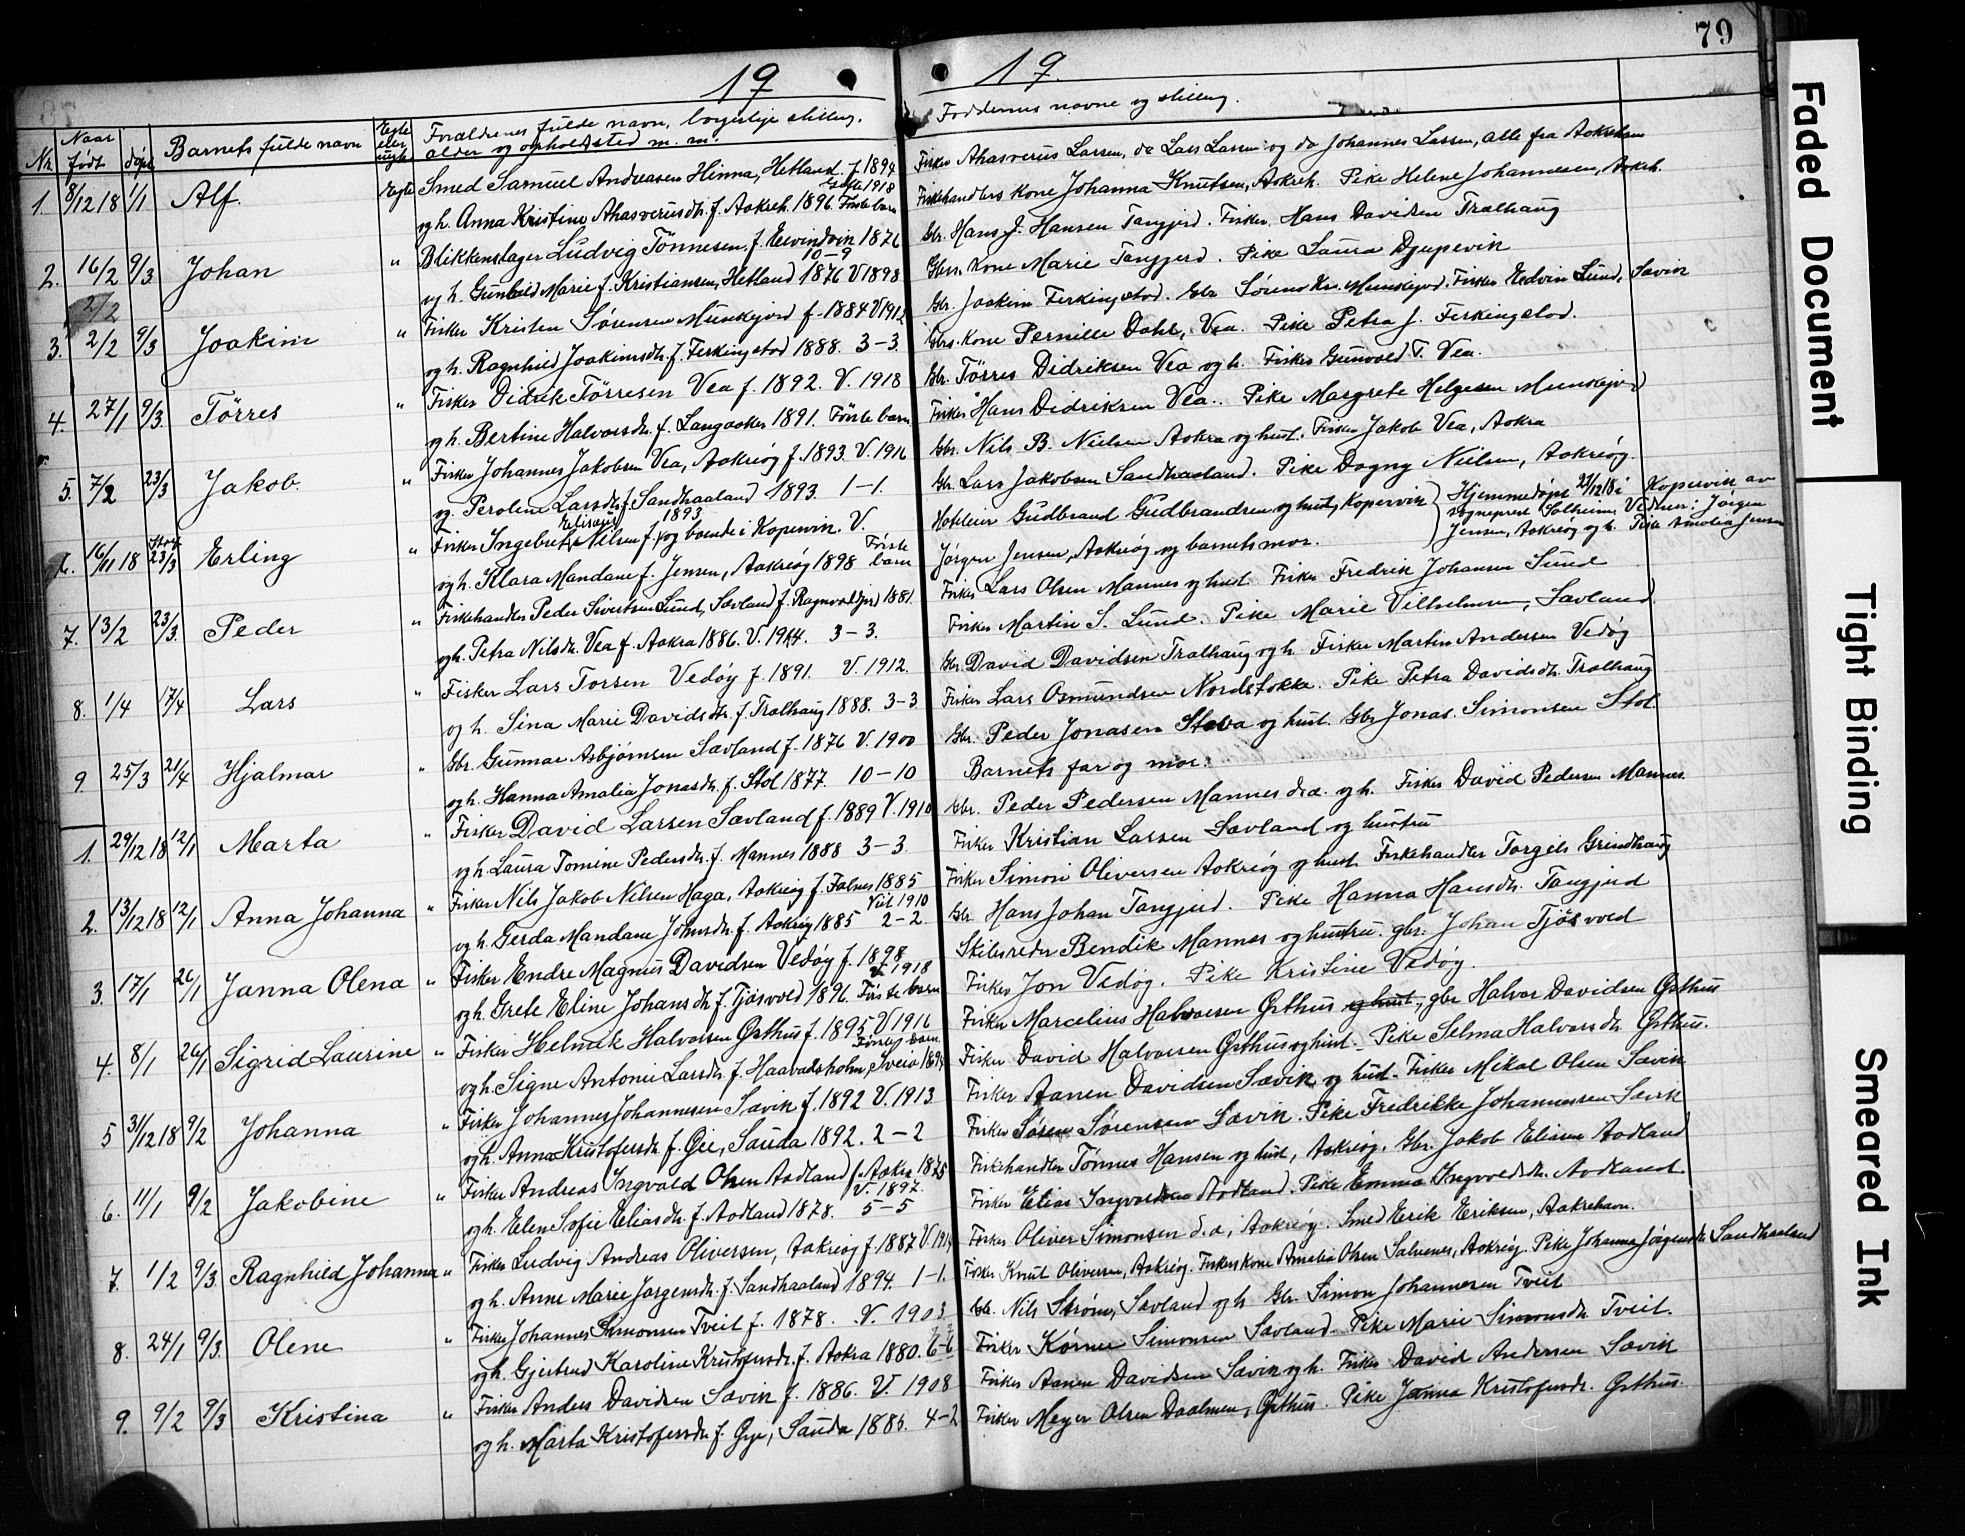 79
19 19.
Nr. Naar født døpt Barnets fulde navn Egte eller uegte Forældrenes fulde navn, borgerlige stilling, alder og opholdssted m. m. Faddernes navne og stilling.
1. 8/12 18 1/1 Alf. Egte Smed Samuel Andreasen Hinna, Hetland f. 1894 Gifte 1918
og h. Anna Kristine Ahasverusdtr. f. Aakreh. 1896. Første barn
Fisker Ahasverus Larsen, do Lars Larsen og do Johannes Larsen, alle fra Aakreham
Fiskehandlers kone Johanna Knutsen, Aakreh. Pike Helene Johannesen, Aakreh.
2. 16/2 9/3 Johan " Blikkenslager Ludvig Tönnesen f. Eivindvik 1876 10-9
og h. Gunhild Marie f. Kristiansen, Hetland 1876 V 1898
Gbr. Hans J. Hansen Tangjerd. Fisker Hans Davidsen Tralhaug
Gbrs. kone Marie Tangjerd. Pike Laura Djupevik
2/2
3. 2/2 9/3 Joakim " Fisker Kristen Sørensen Munkejord f. 1884 V 1912
og h. Ragnhild Joakimsdtr. f. Ferkingstad 1888. 3-3.
Gbr. Joakim Ferkingstad. Gbr Sørens Kr. Munkejord. Fisker Edvin Lund, Sævik
Gbrs. kone Pernille Dahl, Vea. Pike Petra J. Ferkingstad.
4. 27/1 9/3. Törres " Fisker Didrik Törresen Vea f. 1892. V. 1918
og h. Bertine Halvorsdtr. f. Langaaker 1891. Første barn.
Gbr. Törres Didriksen Vea og h. Fisker Gunvald T. Vea.
Fisker Hans Didriksen Vea. Pike Margrete Helgesen Munkejord
5. 7/2 23/3 Jakob. " Fisker Johannes Jakobsen Vea, Aakreög f. 1893. V. 1916
og Peroline Larsdtr. f. Sandhaaland 1893. 1-1.
Gbr. Nils B. Nielsen Aakra og hust. Fisker Jakob Vea, Aakra
Gbr. Lars Jakobsen Sandhaaland. Pike Dagny Nielsen, Aakreög.
6. 16/11 18 23/3 Erling " Fisker Ingebret Elisæus Nilsen f. 1893 og boende i Kopervik. V.
og h. Klara Mandane f. Jensen, Aakreög 1898 Første barn
Hoteleier Gudbrand Gudbrandsen og hust, Kopervik } Hjemmedöpt 21/12 18 i Kopervik av
Jörgen Jensen, Aakreög og barnets mor. sogneprest Solheim. Vidner: Jörgen
Jensen, Aakreög og h. Pike Amalia Jensen
7. 13/2 23/3. Peder " Fiskehandler Peder Sivertsen Lund, Sævland f. Ragnvaldsjord 1881.
og h. Petra Nilsdtr. Vea f. Aakra 1886. V. 1914. 3-3.
Fisker Lars Olsen Mannes og hust. Fisker Fredrik Johansen Lund
Fisker Martin S. Lund. Pike Marie Vilhelmsen, Sævland.
8. 1/4 17/4 Lars " Fisker Lars Torsen Vedöy f. 1891. V. 1912.
og h. Sina Marie Davidsdtr. f. Tralhaug 1888. 3-3
Gbr. David Davidsen Tralhaug og h. Fisker Martin Andersen Vedög
Fisker Lars Osmundsen Nordstokke. Pike Petra Davidsdtr. Tralhaug
9 25/3 21/4 Hjalmar " Gbr. Gunnar Asbjørnsen Sævland f. 1876 V. 1900
og h. Hanna Amalia Jonasdtr. f. Stol 1877. 10-10
Gbr. Peder Jonasen Stava og hust. Gbr Jonas Simonsen Stol.
Barnets far og mor.
1. 29/12 18 12/1 Marta " Fisker David Larsen Sævland f. 1889 V. 1910
og h. Laura Tomine Pedersdtr. f. Mannes 1888 3-3.
Gbr. Peder Pedersen Mannes d.æ. og h. Fisker David Pedersen Mannes.
Fisker Kristian Larsen Sævland og hustru
2. 13/12 18 12/1 Anna Johanna " Fisker Nils Jakob Nilsen Haga, Aakreög f. Falnes 1885 Viet 1910
og h. Gerda Mandane Johnsdtr. f. Aakreög 1885 2-2.
Fisker Simon Oliversen Aakreög og hust. Fiskehandler Torgils Grindhaug
Gbr. Hans Johan Tangjerd. Pike Hanna Hansdtr. Tangjerd
3. 17/1 26/1 Janna Olena " Fisker Endre Magnus Davidsen Vedöy f. 1898 V. 1918
og h. Grete Eline Johansdtr. f. Tjösvold 1896. Første barn
Skibsreder Bendik Mannes og hustru. gbr. Johan Tjösvold
Fisker Jon Vedög. Pike Kristine Vedög.
4. 8/1 26/1 Sigrid Laurine " Fisker Helmik Halvorsen Østhus f. 1895 V 1916 Første barn
og h. Signe Antonie Larsdtr. f. Haavardsholm, Sveio 1894
Fisker Marcelius Halvorsen Østhus og hust, gbr Halvor Davidsen Østhus
Fisker David Halvorsen Østhus og hust. Pike Selma Halvorsdtr. Østhus.
5 31/12 18 9/2 Johanna " Fisker Johannes Johannesen Sævik f. 1892 V. 1913
og h. Anna Kristofersdtr. f. Gee, Sauda 1892. 2-2
Fisker Aanen Davidsen Sævik og hust. Fisker Mikal Olsen Sævik
Fisker Søren Sørensen Sævik. Pike Fredrikke Johannesen Sævik
6. 11/1 9/2 Jakobine " Fisker Andreas Ingvald Olsen Aadland f. Aakra 1875 V. 1897.
og h. Elen Sofie Eliasdtr. f. Aadland 1878. 5-5
Fiskehandler Tönnes Hansen og hust, Aakreög. Gbr. Jakob Eliasen Aadland
Fisker Elias Ingvaldsen Aadland. Pike Emma Ingvaldsdtr. Aadland.
7. 1/2 9/3. Ragnhild Johanna " Fisker Ludvig Andreas Oliversen, Aakreög f. 1887 V. 1914
og h. Anne Marie Jørgensdtr. f. Sandhaaland 1894. 1-1.
Fisker Oliver Simonsen d.æ, Aakreög. Smed Erik Eriksen, Aakrehavn.
Fisker Knut Oliversen, Aakreög. Fiskerskone Amalia Olsen Salvenes, Aakreög. Pike Johanna Jörgensdtr. Sandhaaland
8. 24/1 9/3. Olene " Fisker Johannes Simonsen Tveit f. 1878. V. 1903
og h. Gjertrud Karoline Kristofersdtr. f. Aakra 1880. 6-6
Gbr. Nils Strøm, Sævland og h. Gbr. Simon Johannesen Tveit
Fisker Kørner Simonsen Sævland. Pike Marie Simonsdtr. Tveit.
9. 9/2 9/3 Kristina " Fisker Anders Davidsen Sævik f. 1886. V. 1908
og h. Marta Kristofersdtr. f. Gye, Sauda 1885. 4-2
Fisker Aanen Davidsen Sævik og h. Fisker David Andersen Sævik
Fisker Meyer Olsen Daalmen, Østhus. Pike Janna Kristofersdtr. Østhus.
Faded Document
Tight Binding
Smeared Ink